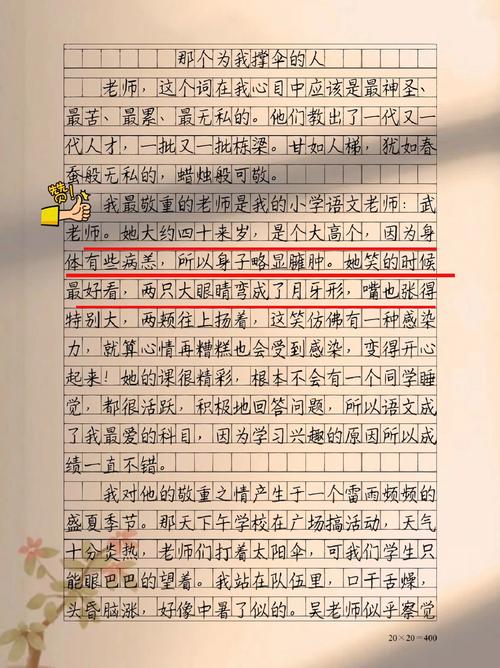 那个为我撑伞的人
老师，这个词在我心目中应该是最神圣、
最苦、最累、最无私的。他们教出了一代又一
代人才，一批又一批栋梁。甘如人梯，犹如春
蚕般无私的，蜡烛般可敬。
赞！
我最敬重的老师是我的小学语文老师：武
老师。她大约四十来岁，是个大高个，因为身
体有些病恙，所以身子略显臃肿。她笑的时候
最好看，两只大眼睛弯成了月牙形，嘴也张得
特别大，两颊往上扬着，这笑仿佛有一种感染
力，就算心情再糟糕也会受到感染，变得开心
起来！她的课很精彩，根本不会有一个同学睡
觉，都很活跃，积极地回答问题，所以语文成
了我最爱的科目，因为学习兴趣的原因所以成
绩一直不错。
我对他的敬重之情产生于一个雷雨频频的
盛夏季节。那天下午学校在广场搞活动，天气
十分炎热，老师们打着太阳伞，可我们学生只
能眼巴巴的望着。我站在队伍里，口干舌燥，
头昏脑涨，好像中暑了似的。吴老师似乎察觉
20×20=400